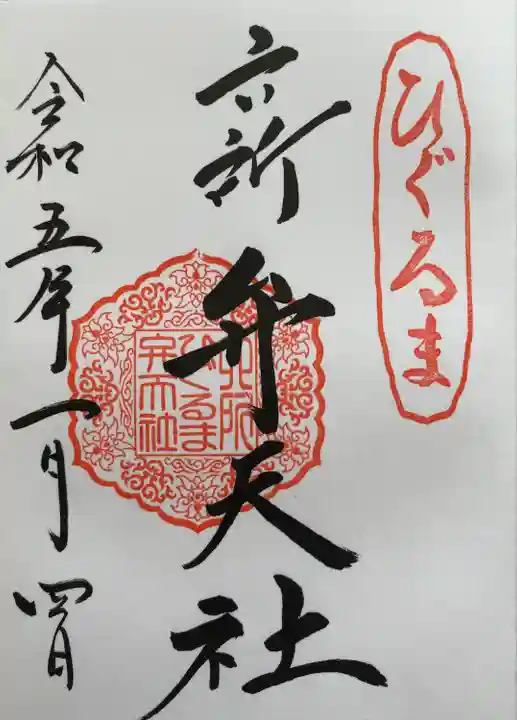 ひぐるま
六所弁天社
六所
ひぐるま
弁天社
令和五年一月四日